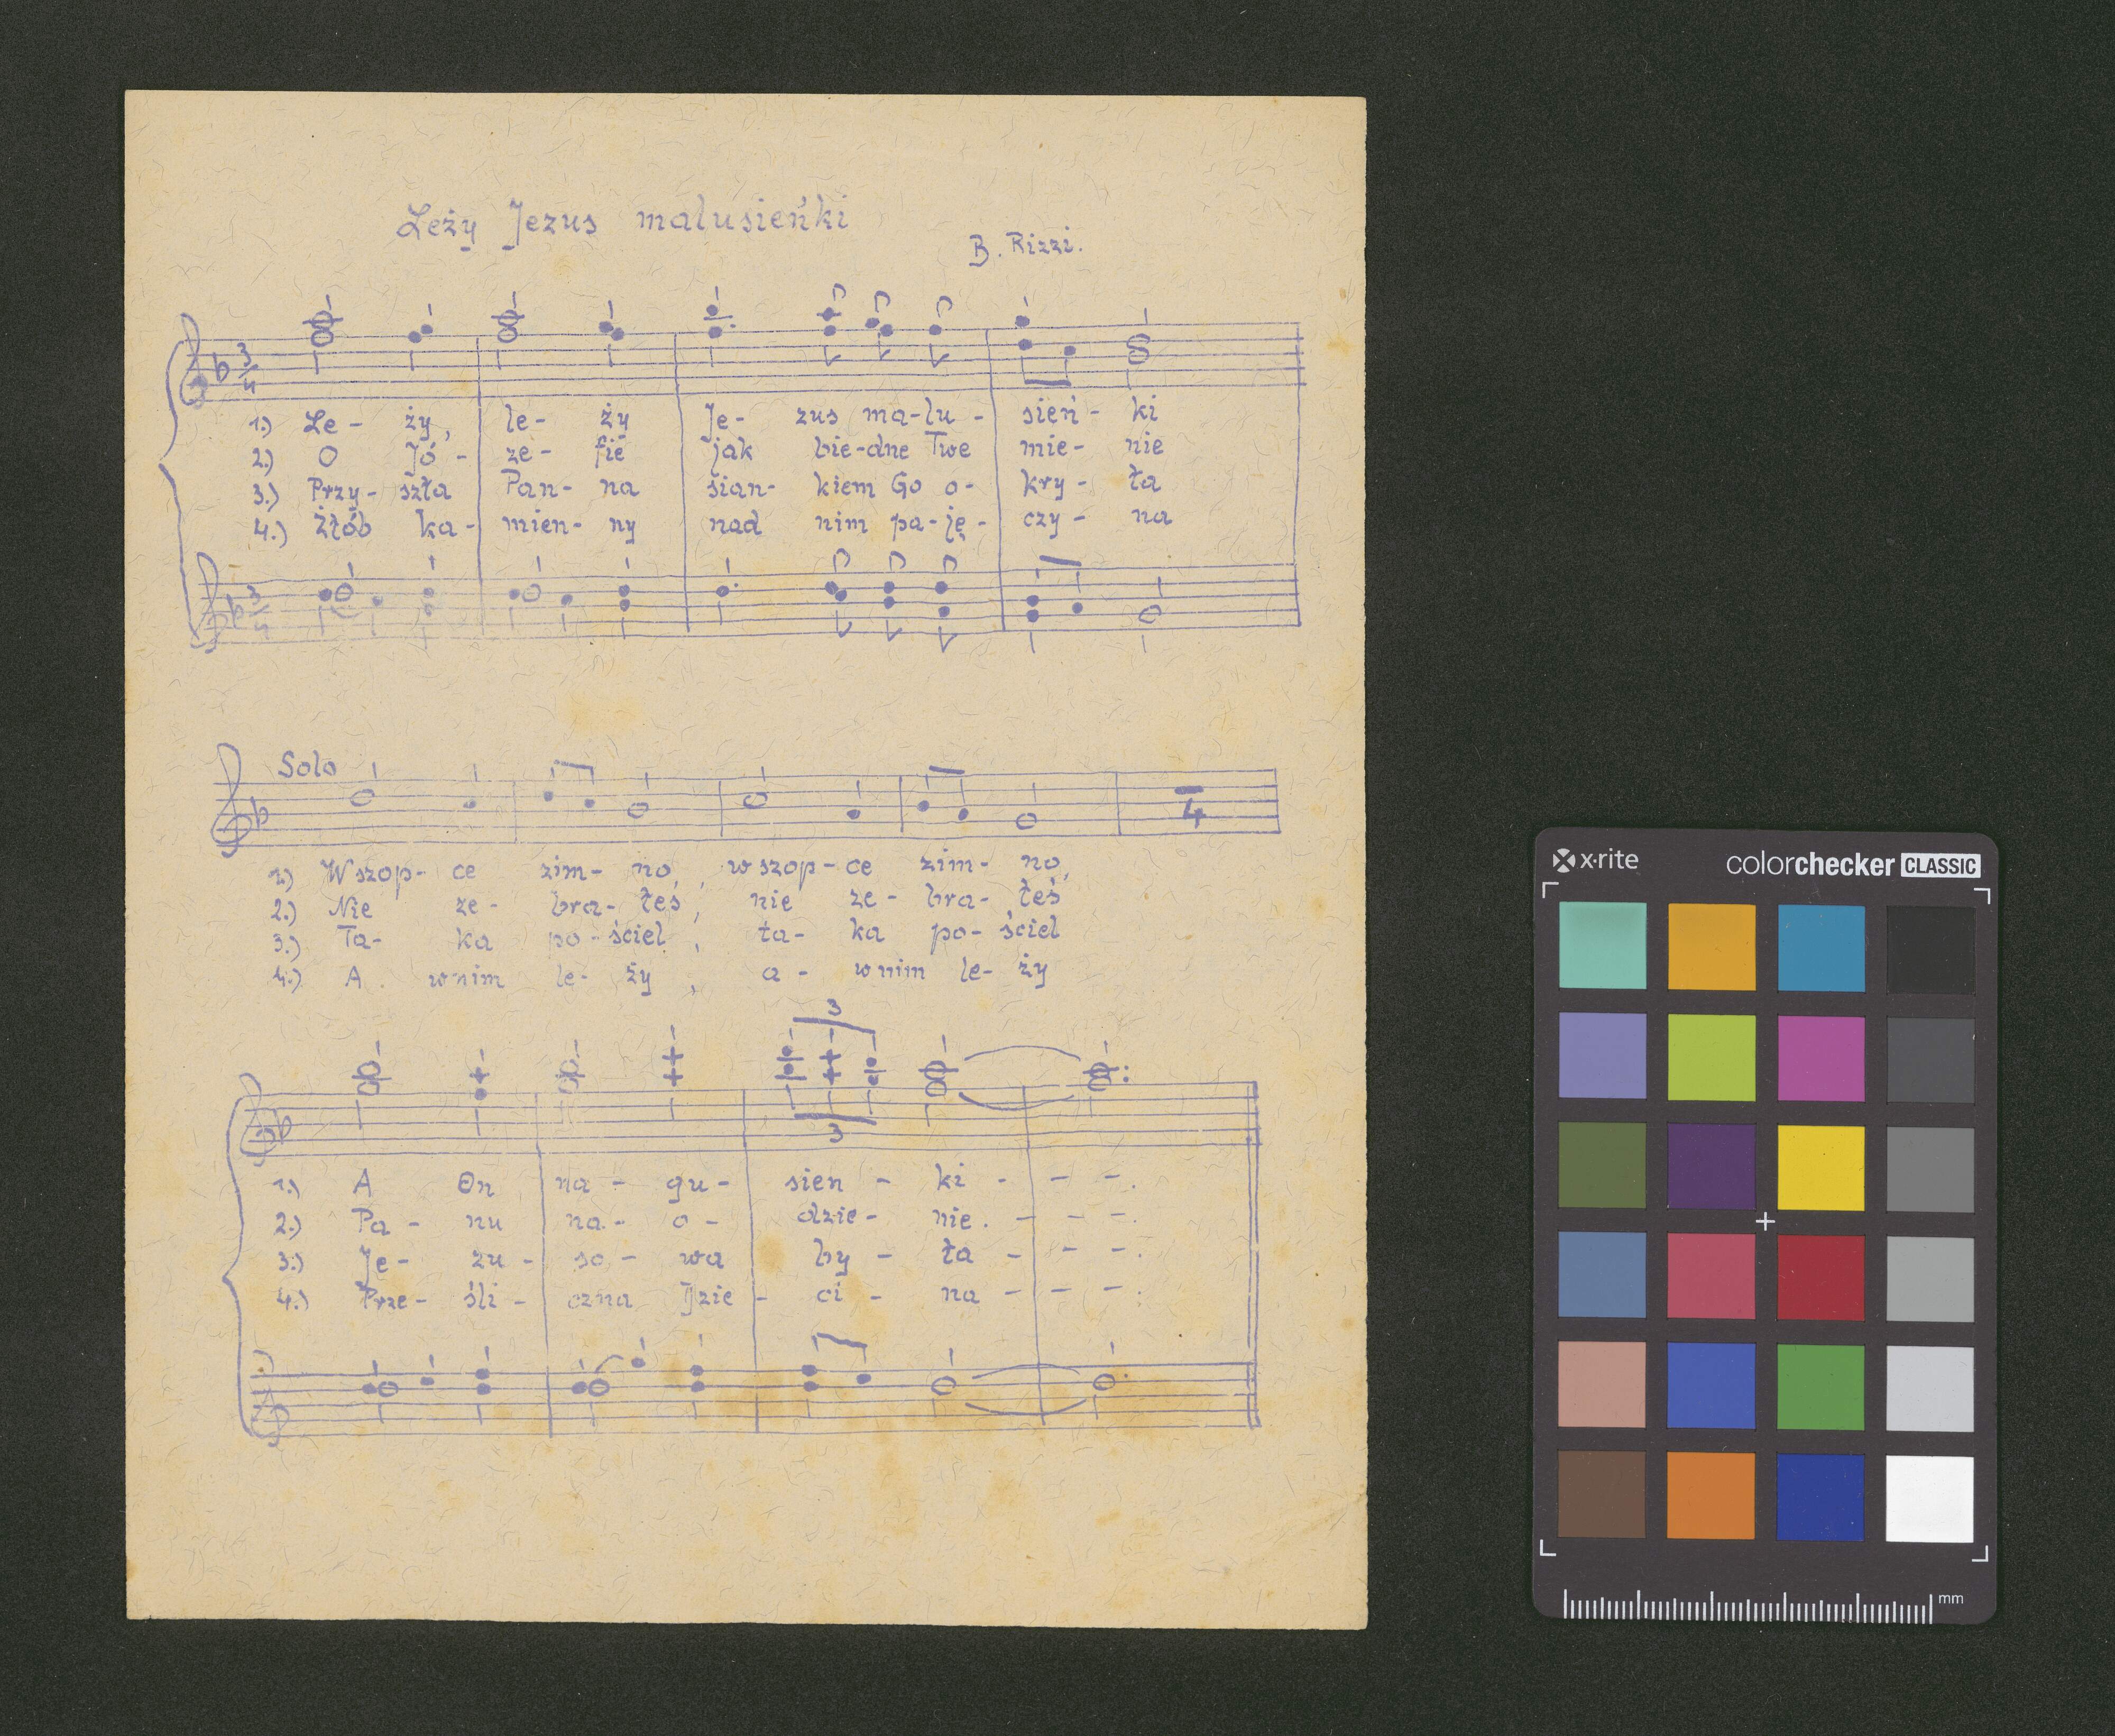 Leży Jezus malusieńki
B. Rizzi.
3/4
1.) Le- ży, le- ży Je- zus ma-lu- sień- ki
2.) O Jó- ze- fie jak bie-dne Twe mie- nie
3.) Przy- szła Pan- na sian- kiem Go o- kry- ła
4.) Żłób ka- mien- ny nad nim pa-ję- czy- na
3/4
Solo
4
1) W szop- ce zim- no, w szop- ce zim- no,
2.) Nie ze- bra- łeś, nie ze- bra- łeś
3.) Ta- ka po- ściel, ta- ka po- ściel
4.) A w nim le- ży, a- w nim le- ży
3
3
1.) A On na- gu- sien- ki - - -.
2.) Pa- nu na- o- dzie- nie. - - -.
3.) Je- zu- so- wa by- ła - - -.
4.) Prze- śli- czna Dzie- ci- na - - -.
x-rite colorchecker CLASSIC
mm